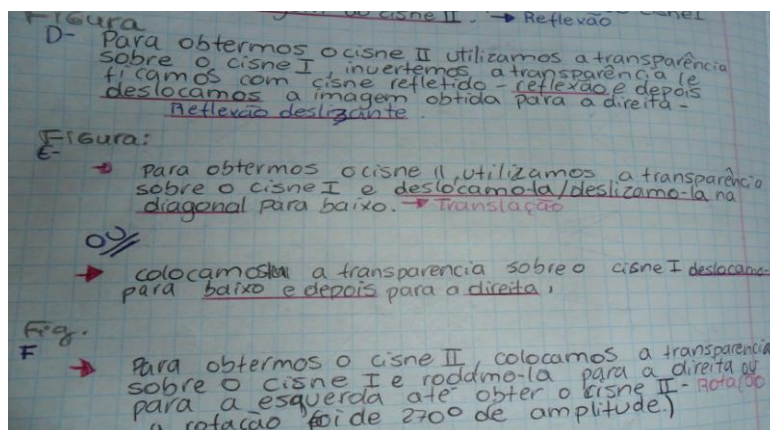 cisne II. → Reflexão
Figura
D- Para obtermos o cisne II utilizamos a transparência
sobre o cisne I, invertemos a transparência (e
ficamos com cisne refletido - reflexão e depois
deslocamos a imagem obtida para a direita -
Reflexão deslizante.
Figura:
E-
→ Para obtermos o cisne II, utilizamos a transparência
sobre o cisne I e deslocamo-la/deslizamo-la na
diagonal para baixo. → Translação
OU
→ colocamos a transparencia sobre o cisne I deslocamo-
para baixo e depois para a direita,
Fig.
F → Para obtermos o cisne II, colocamos a transparencia
sobre o cisne I e rodámo-la para a direita ou
para a esquerda até obter o cisne II - Rotação
a rotação foi de 270º de amplitude.)